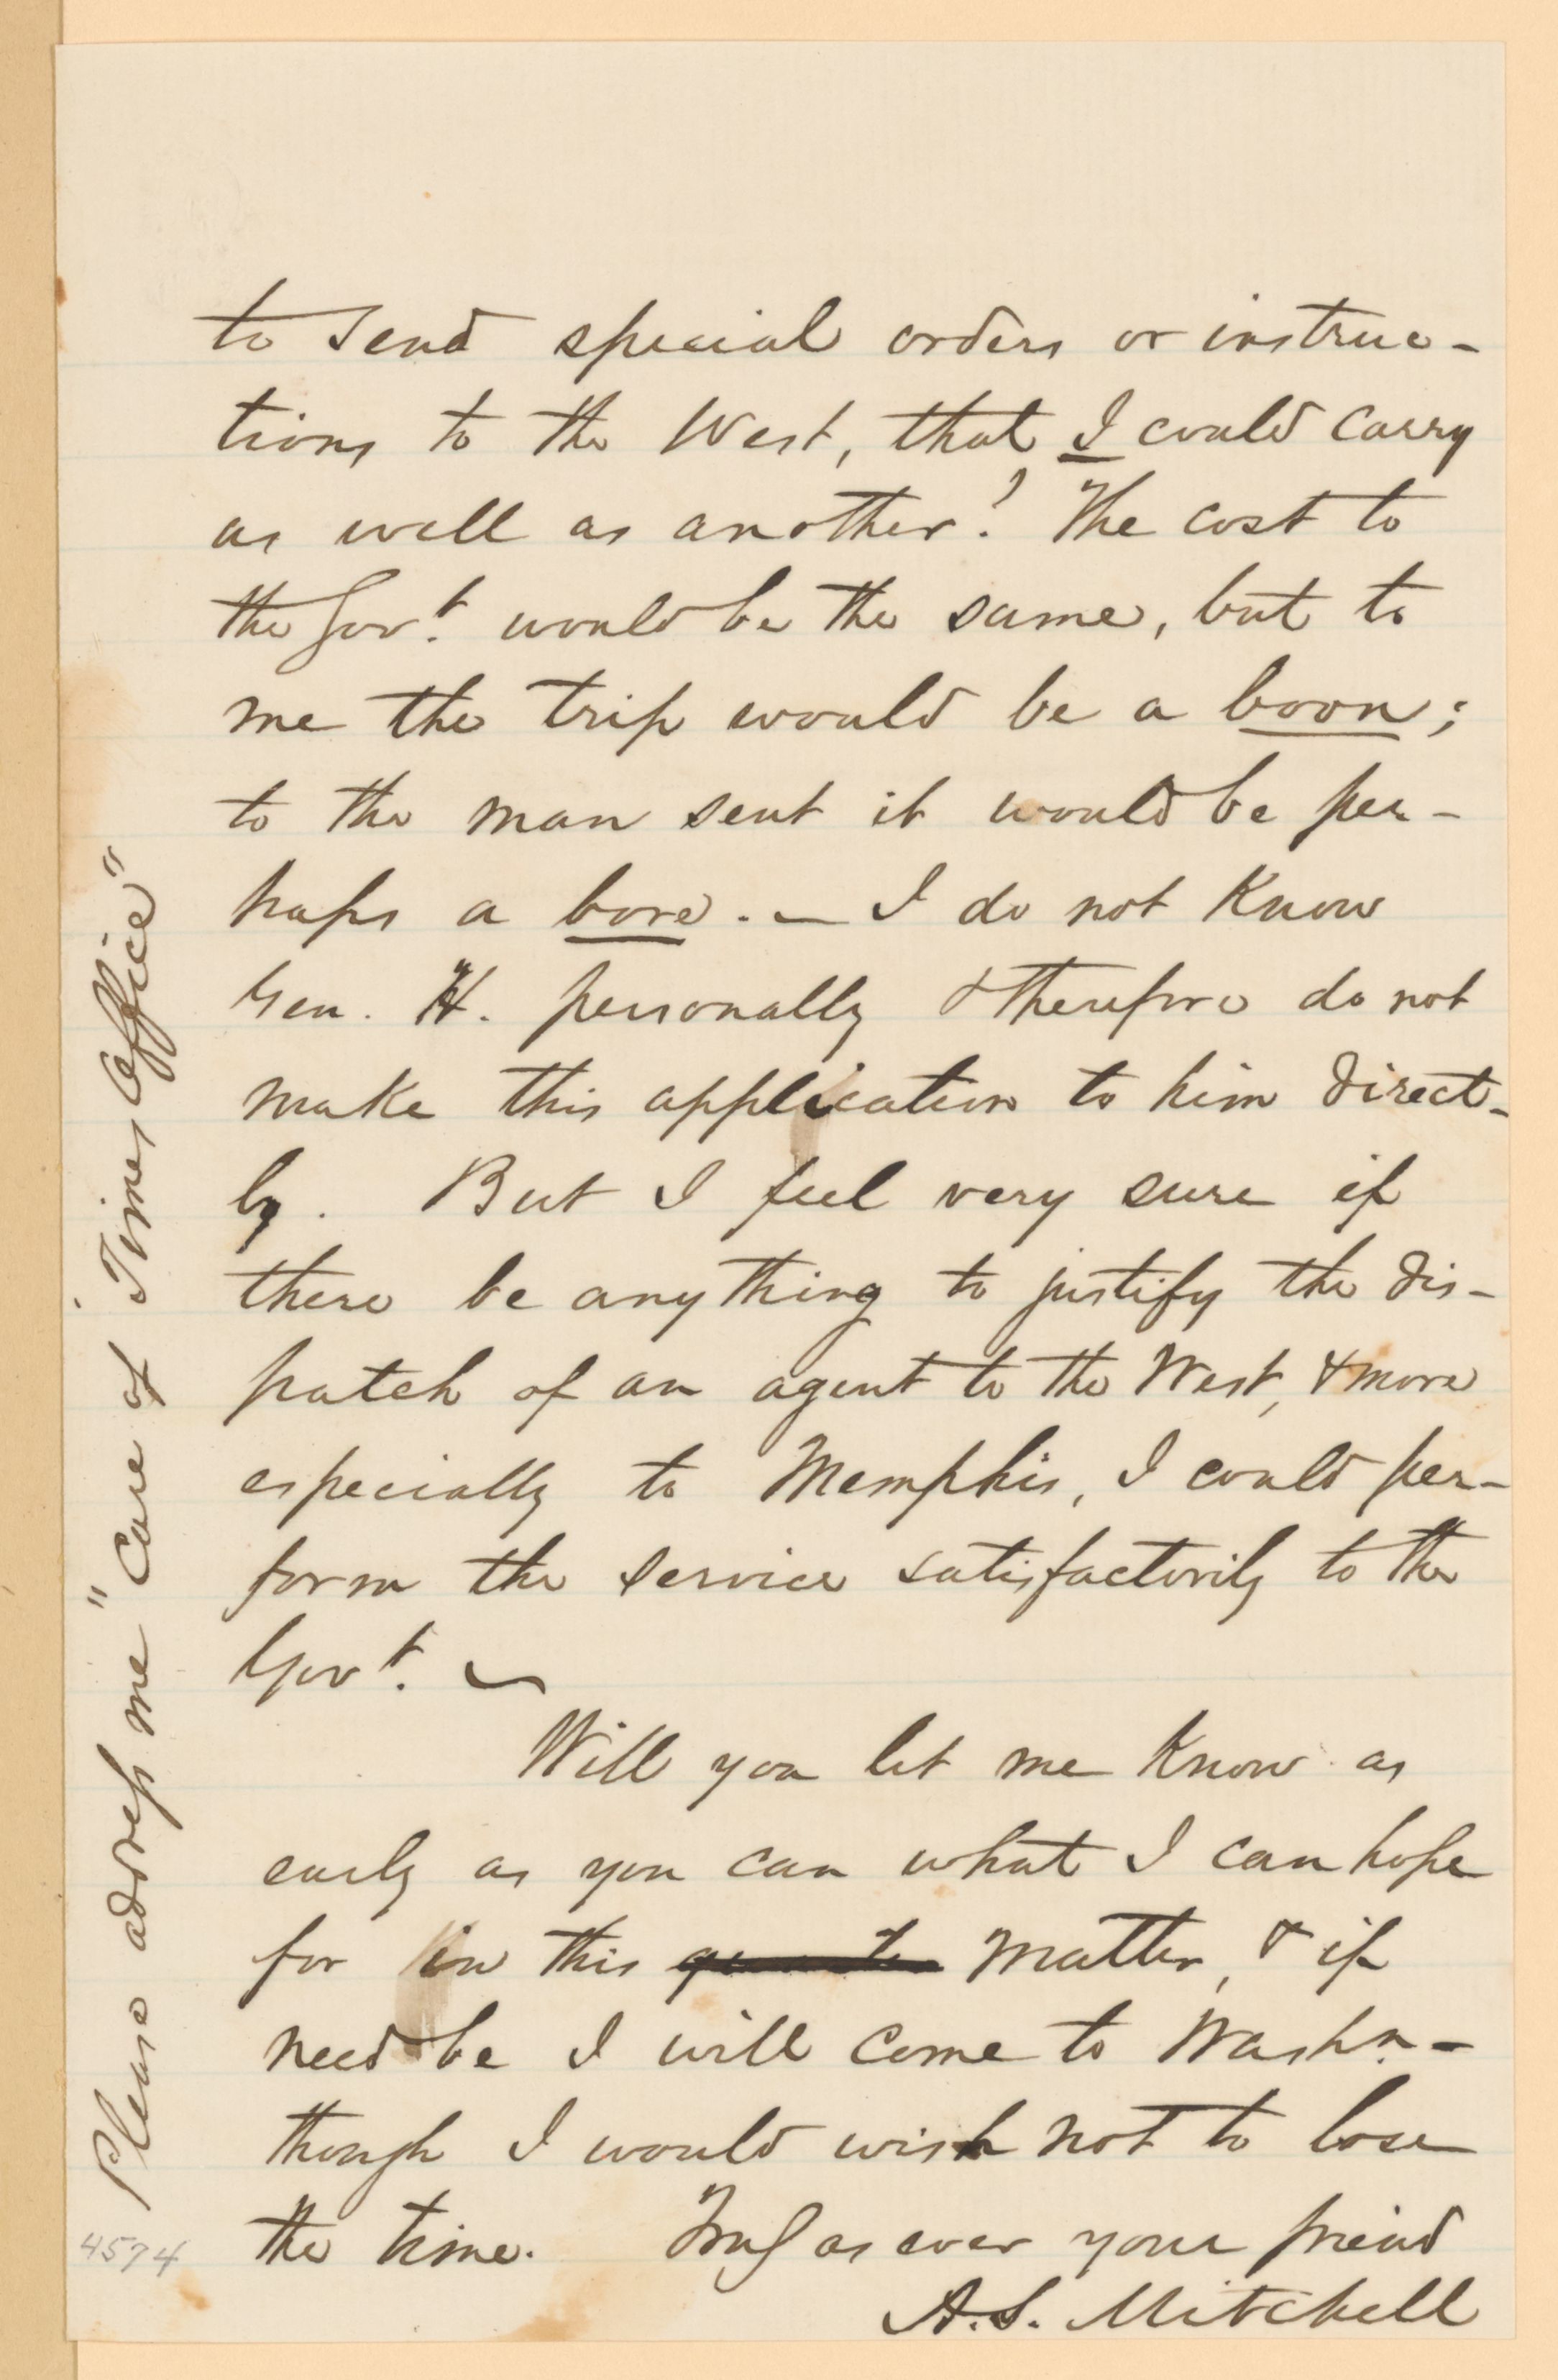 to send special orders or instruc-
tions to the West, that I could carry
as well as another? The cost to
the Govt. would be the same, but to
me the trip would be a boon;
to the man sent it would be per-
haps a bore. — I do not know
Gen. H. personally & therefore do not
make this application to him direct-
ly. But I feel very sure if
there be anything to justify the dis-
patch of an agent to the West, & more
especially to Memphis, I could per-
form the service satisfactorily to the
Govt. —
Will you let me know as
early as you can what I can hope
for in this matter, & if
need be I will come to Washn. -
though I would wish not to lose
the time. Truly as ever your friend
A.S. Mitchell
Please address me "Care of Times Office"
4574